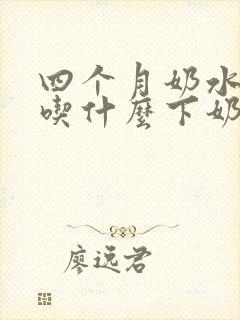 四个月奶水
喫什麼下奶
廖远君